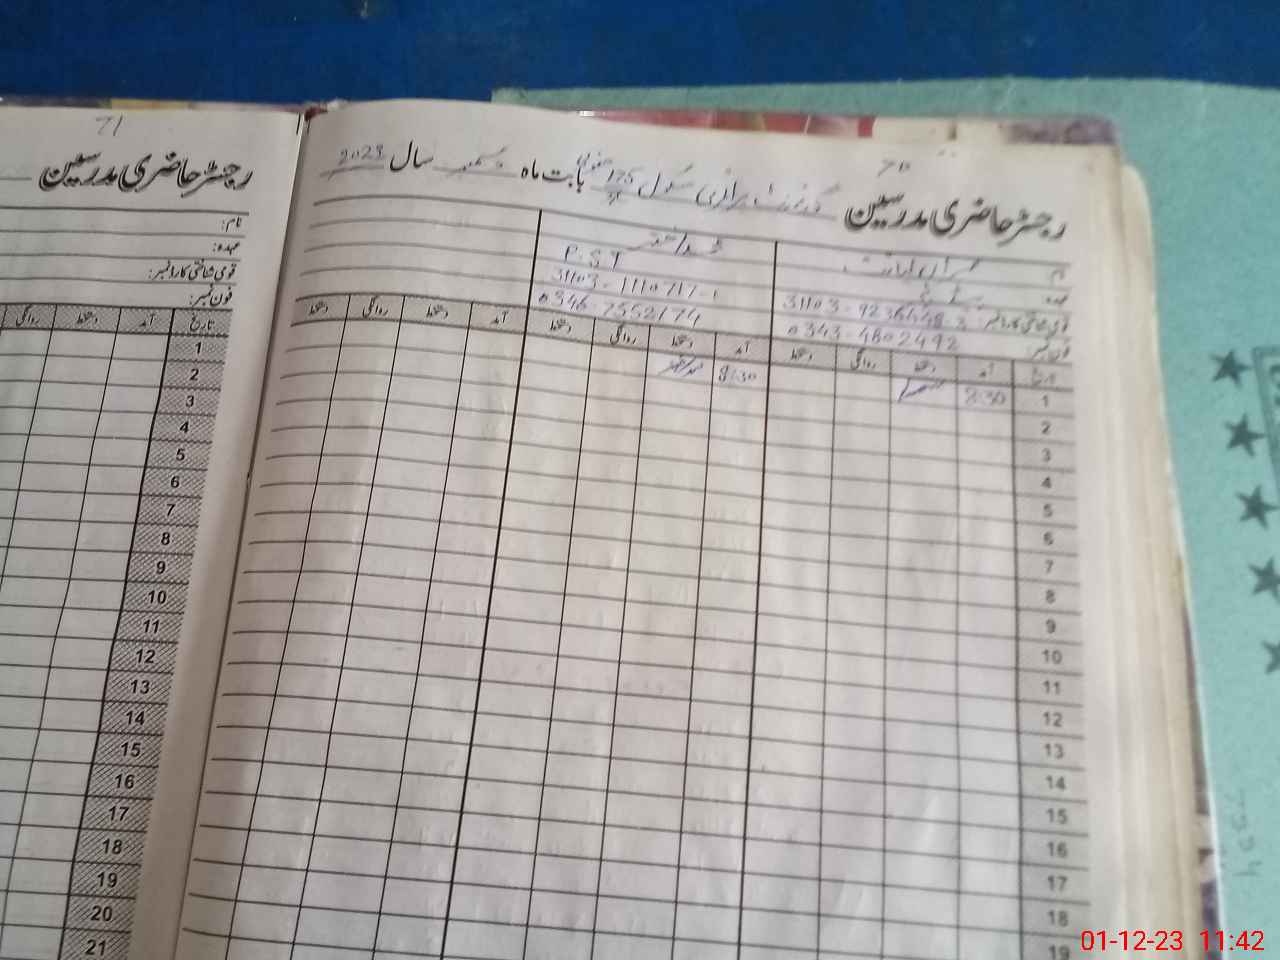 71
رجسٹر حاضری مدرسین
نام:
عہدہ:
قومی شناختی کارڈ نمبر:
فون نمبر:
تاریخ آمد دستخط روانگی
1
2
3
4
5
6
7
8
9
10
11
12
13
14
15
16
17
18
19
20
21
70
رجسٹر حاضری مدرسین گورنمنٹ پرائمری سکول 175 بابت ماہ دسمبر سال 2023
نام
عہدہ P.S.T
قومی شناختی کارڈ نمبر: 31103-9236448-3 31103-1110717-1
فون نمبر: 0343-4802492 0346-7552174
تاریخ آمد دستخط روانگی دستخط آمد دستخط روانگی دستخط آمد دستخط روانگی دستخط
1 8:30 8:30
2
3
4
5
6
7
8
9
10
11
12
13
14
15
16
17
18
19
01-12-23 11:42